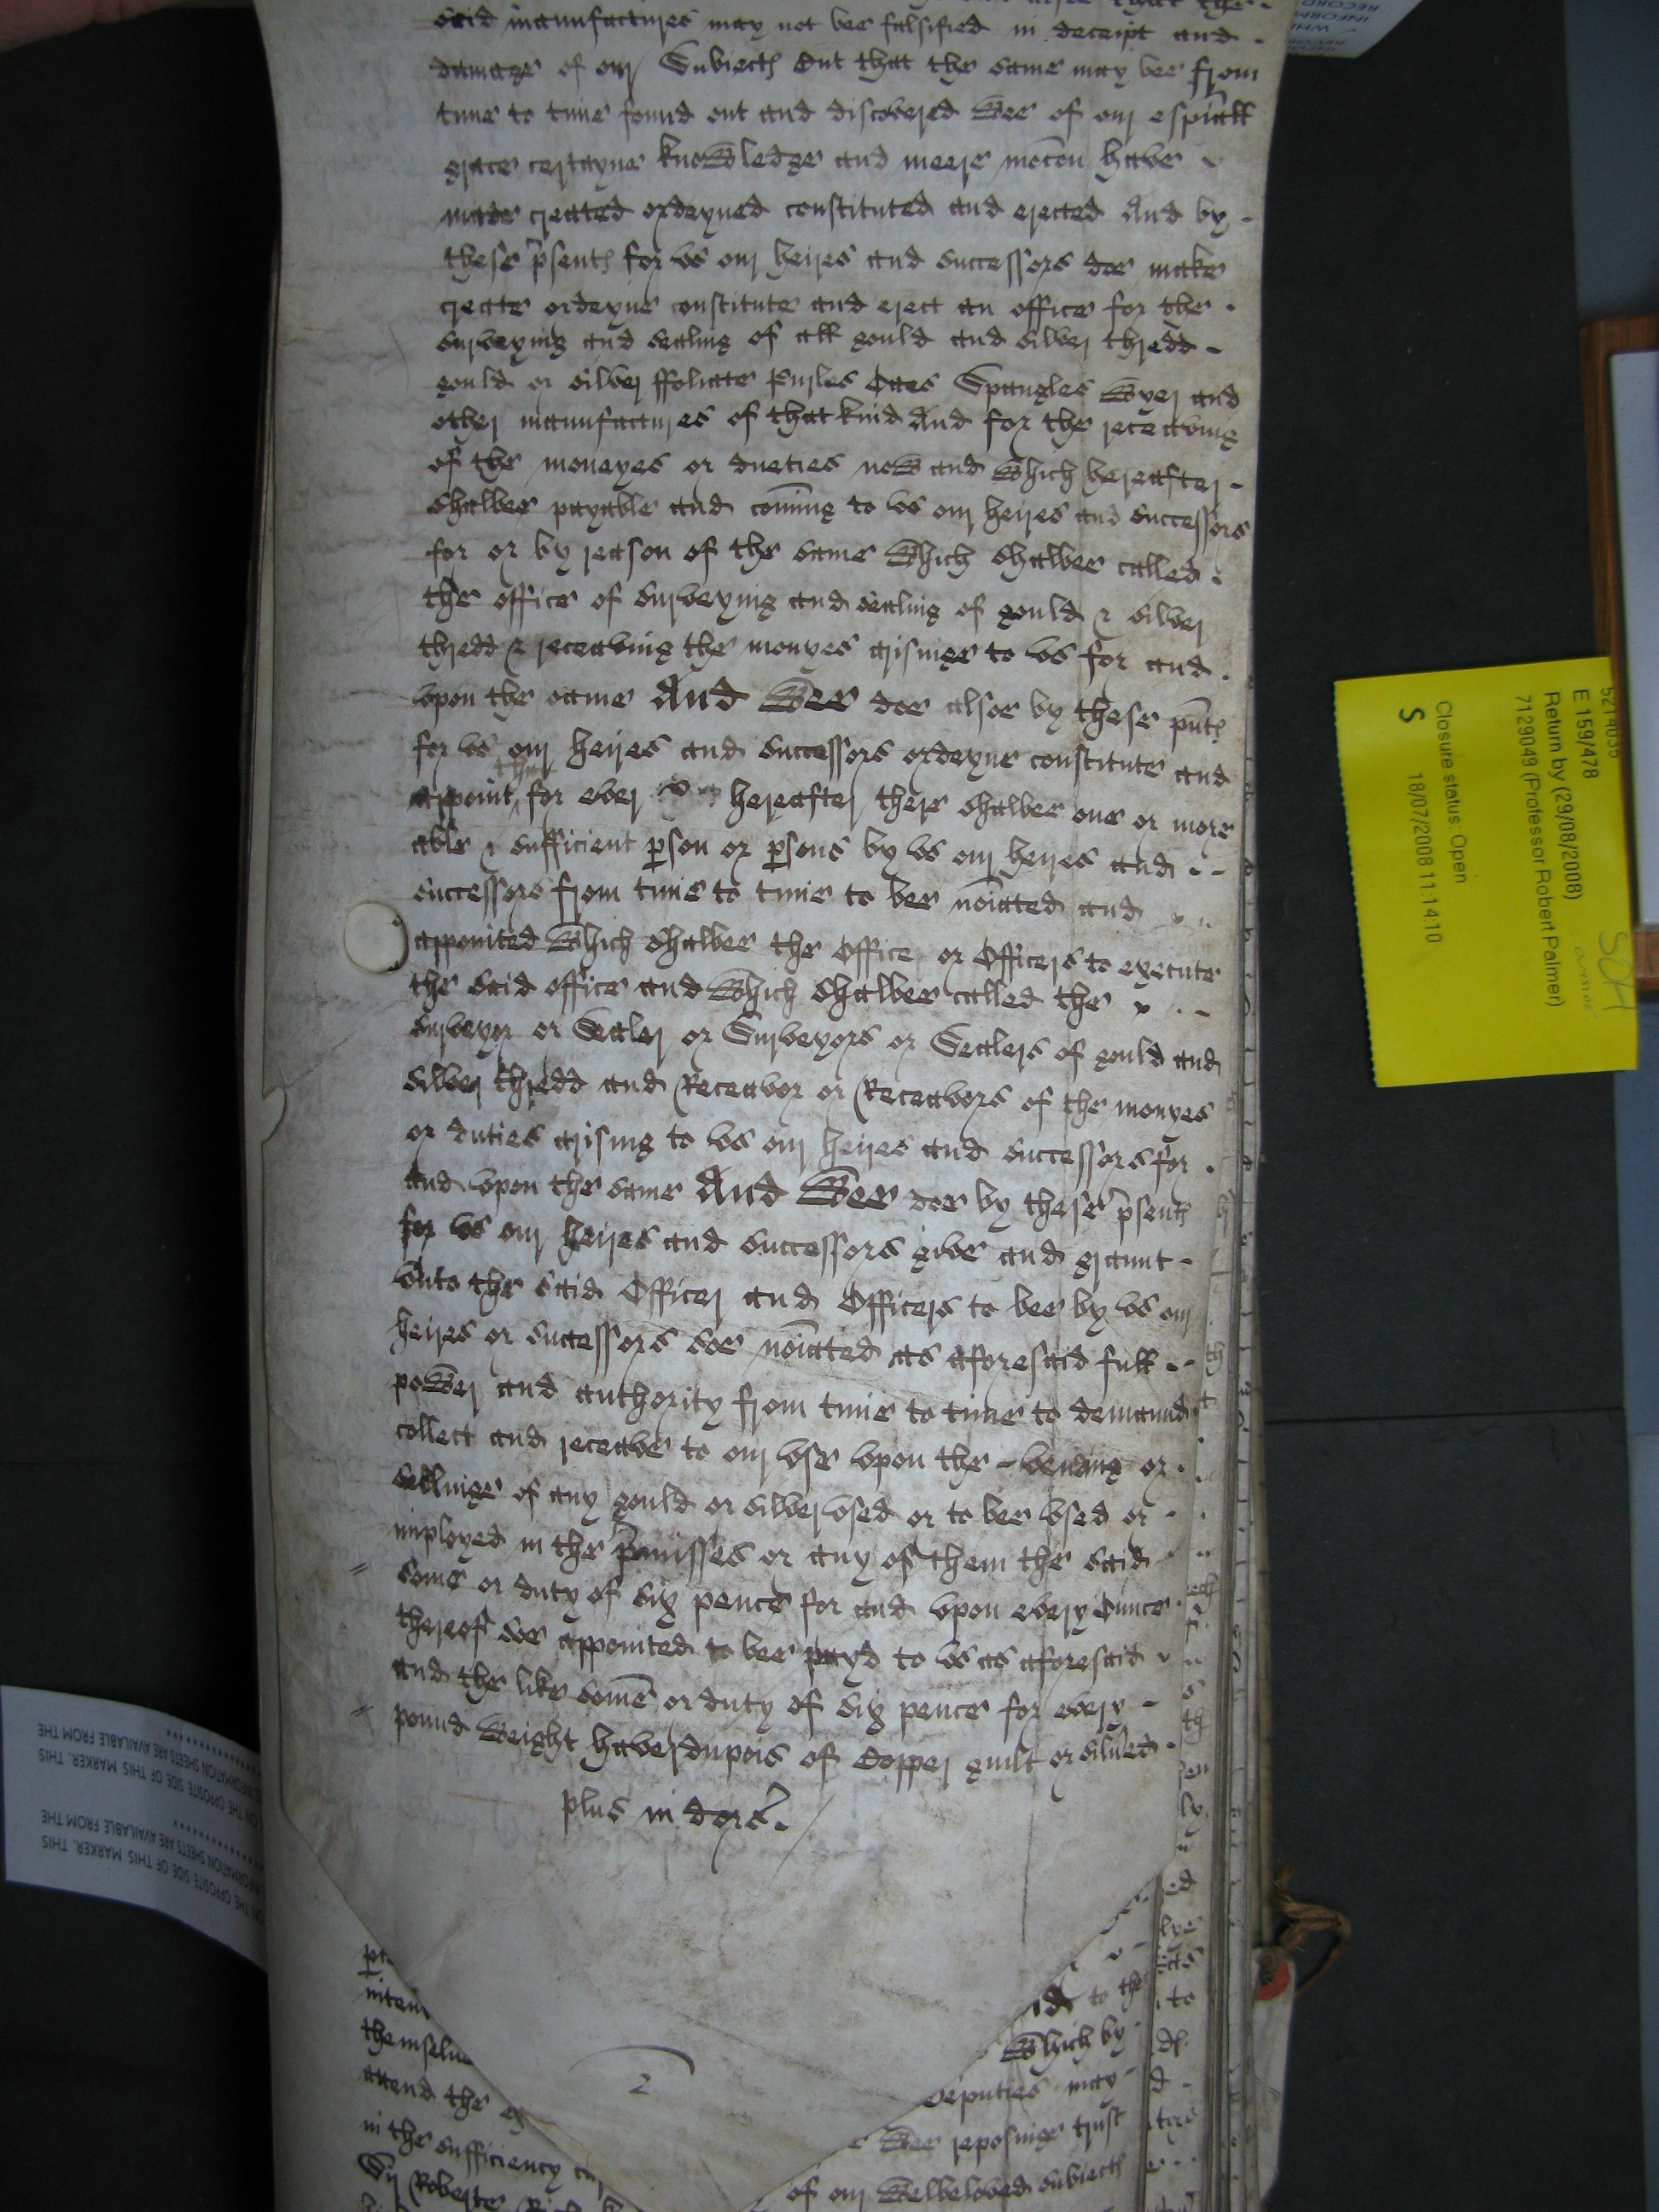 said manufactures may not bee falsified in deceipt and
damage of our Subiects But that the same may bee from
time to time found out and discovered Wee of our espiall
grace certayne knowledge and meere mocon have
made created ordeyned constituted and erected And by
these psents for vs our heires and successors doe make
create ordeyne constitute and erect an office for the
surveying and sealing of all gould and silver thredd
gould or silver ffoliate Purles Oaes Spangles Wyer and
other manufactures of that kind And for the receaving
of the moneyes or dueties now and which hereafter
shalbee payable and coming to vs our heires and successors
for or by reason of the same which shalbee called
the office of surveying and sealing of gould & silver
thredd & receaving the monyes arisinge to vs for and
vpon the same And Wee doe alsoe by these pnts
for vs our heires and successors ordeyne constitute and
appoint that for ever hereafter there shalbee one or more
able & sufficient pson or psons by vs our heires and
successors from time to time to bee noiated and
appointed which shalbee the Officer or Officers to execute
the said office and which shalbee called the
surveyor or Sealer or Surveyors or Sealers of gould and
silver thredd and Receavor or Receavors of the monyes
or duties arising to vs our heires and successors for
and vpon the same And Wee doe by these psents
for vs our heires and successors give and graunt
vnto the said Officer and Officers to bee by vs our
heires or successors soe noiated as aforesaid full
power and authority from time to time to demaund
collect and receave to our vse vpon the vending or
sellinge of any gould or silver vsed or to bee vsed or
imployed in the pmisses or any of them the said
some or duty of six pence for and vpon every Ounce
thereof soe appointed to bee payd to vs as aforesaid
and the like some or duty of six pence for every
pound weight haverdupois of Copper guilt or silued
plus in dors
2
intem
themselue
attend the ex
in the sufficiency
Sir Roberte Rich
id to the
which by
deputies may
Wee reposinge trust
of our welbeloved subiects
E 159/478
Return by (29/08/2008)
7129049 (Professor Robert Palmer)
Closure status: Open
18/07/2008 11:14:10
S
ON THE OPPOSITE SIDE OF THIS MARKER. THIS
INFORMATION SHEETS ARE AVAILABLE FROM THE